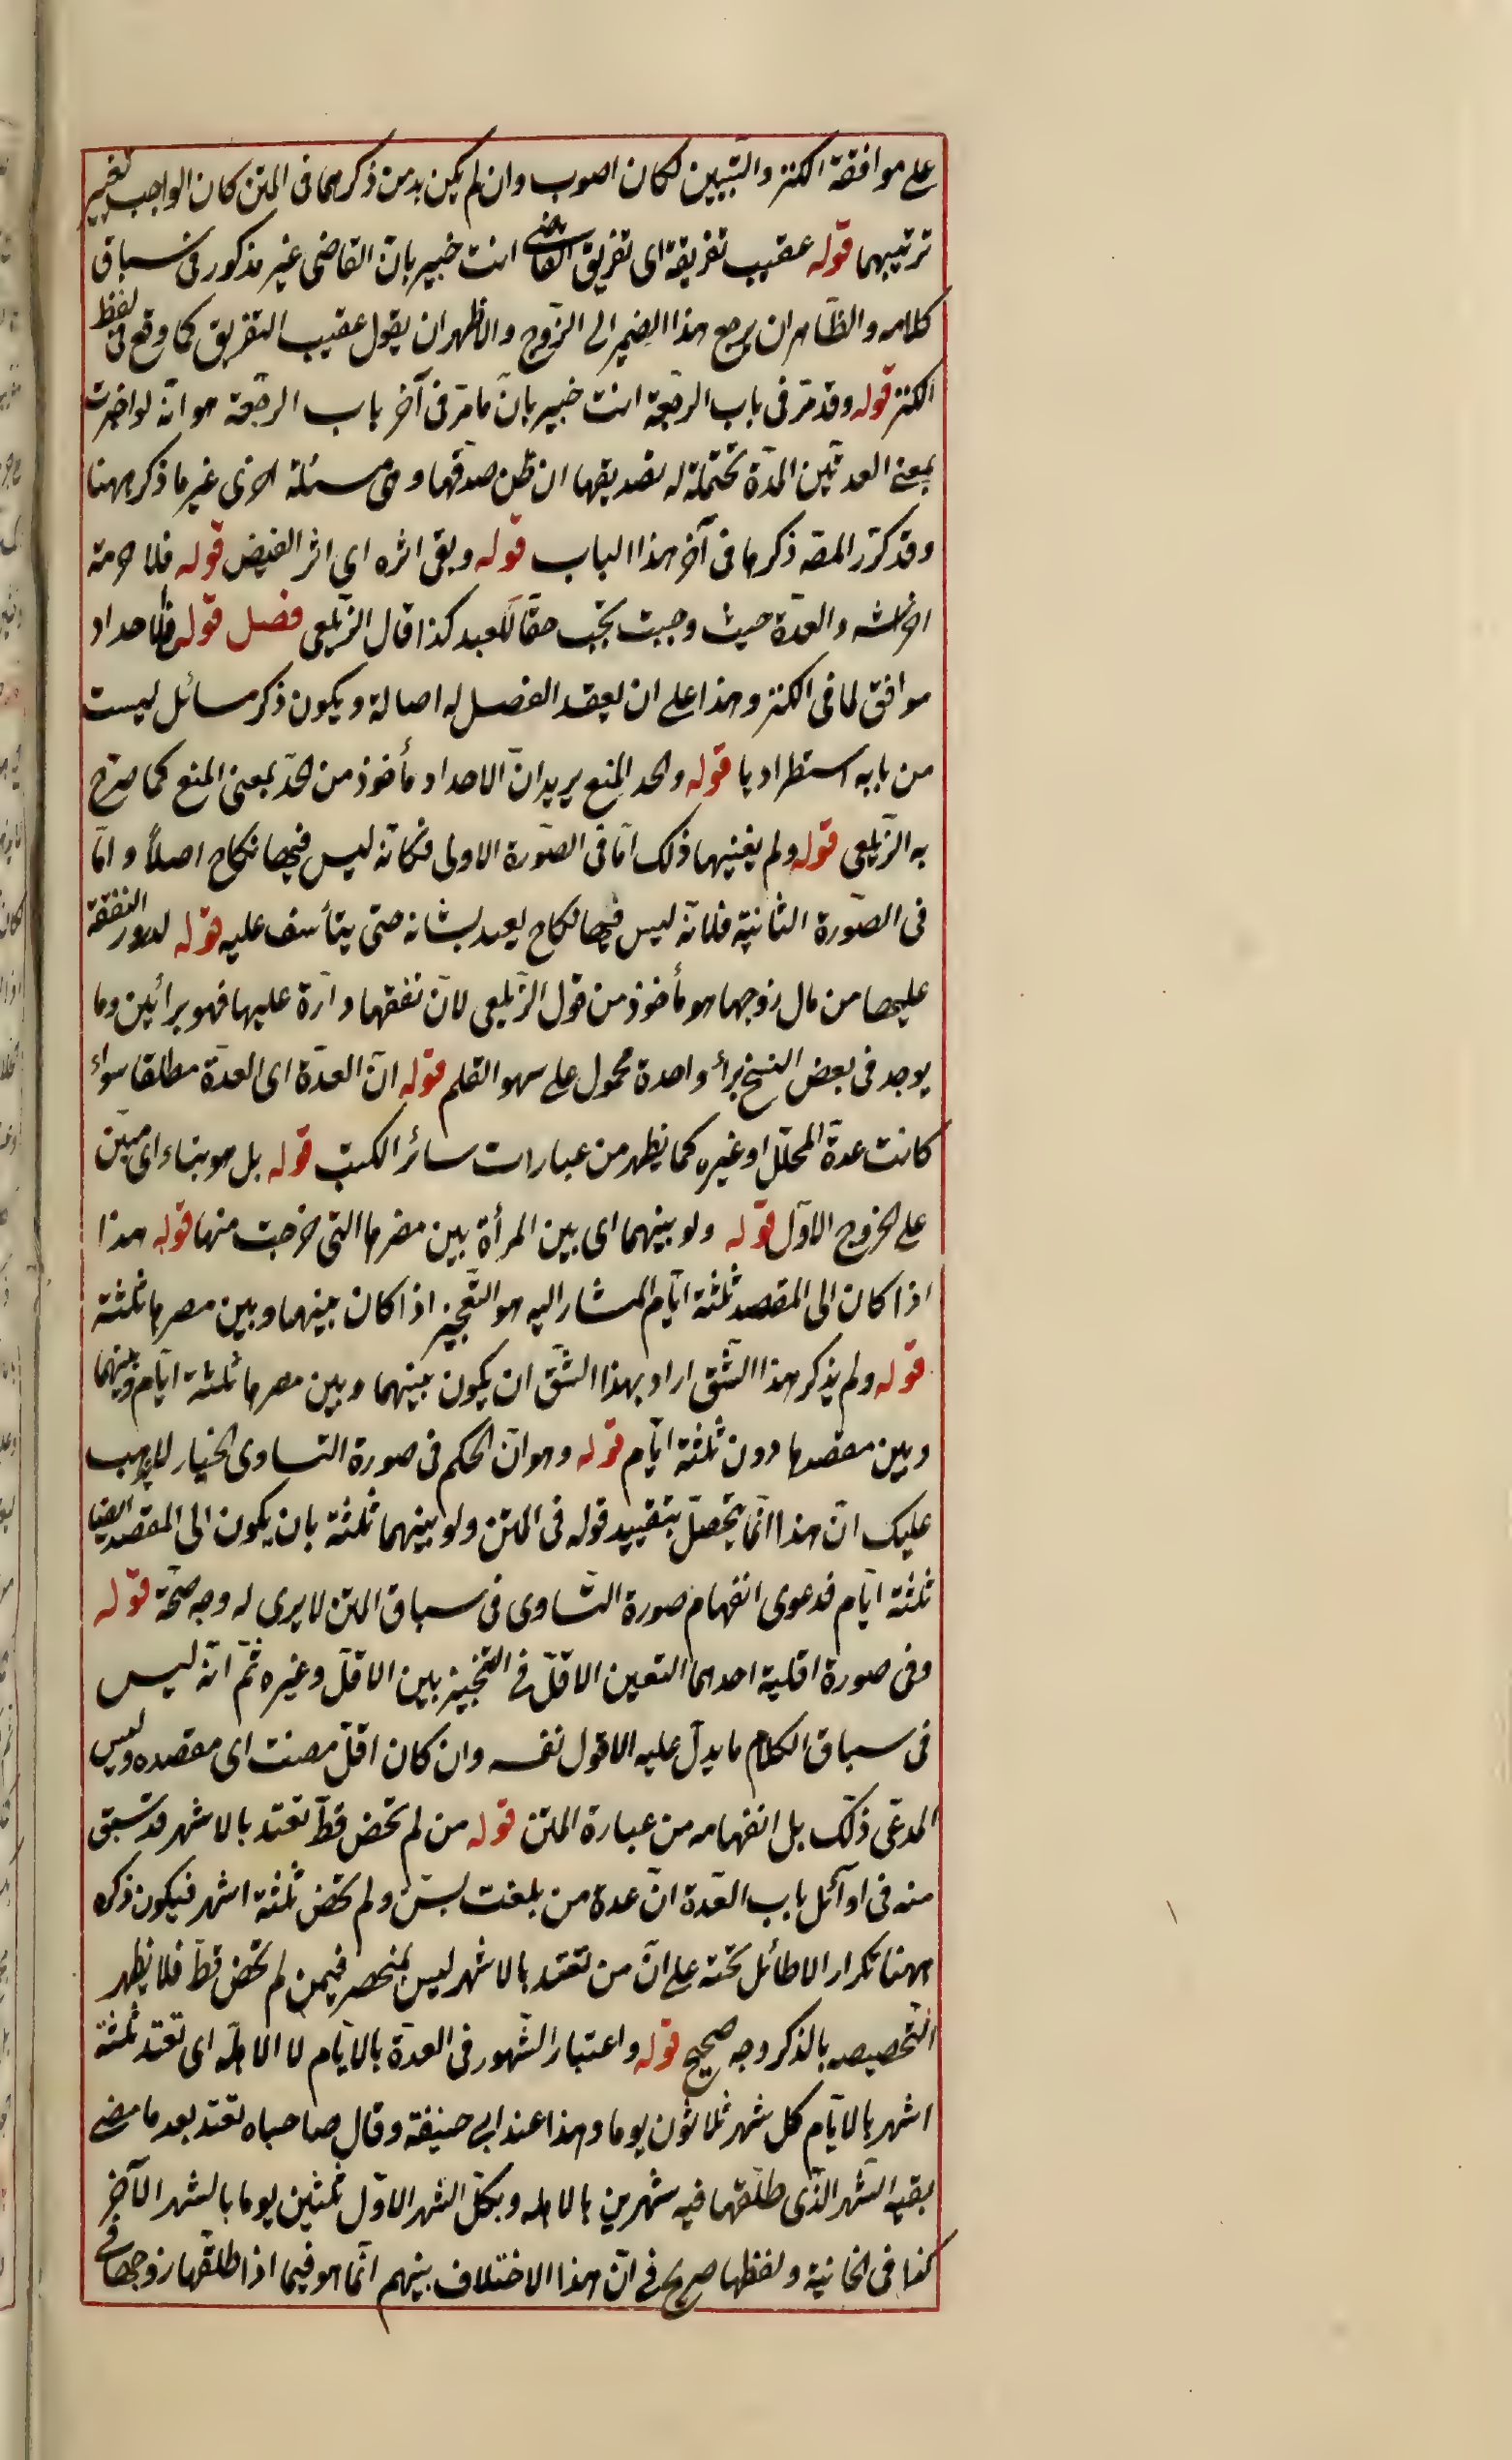 على موافقة الكنز والتبيين لكان اصوب وان لم يكن بد من ذكرهما فى المتن كان الواجب تغيير
ترتيبهما قوله عقيب تفريقه اى تفريق القاضى انت خبير بان القاضى غير مذكور فى سباق
كلامه والظاهر ان يرجع هذا الضمير الى الزوج والاظهر ان يقول عقيب التفريق كما وقع فى لفظ
الكنز قوله وقد مر فى باب الرجعة انت خبير بان ما مر فى آخر باب الرجعة هو انه لو اخبرت
بمضى العدتين المدة تحتمله له تصديقها ان ظن صدقها وهى مسئلة اخرى غير ما ذكر ههنا
وقد كرر المصه ذكرها فى آخر هذا الباب قوله وبقى اثره اى اثر الفيض قوله فلا حرمة
لفراشه والعدة حيث وجبت تجب حقا للعبد كذا قال الزيلعى فصل قوله فلا حداد
موافق لما فى الكنز وهذا على ان يعقد الفصل له اصالة ويكون ذكر مسائل ليست
من بابه استطراديا قوله والحد المنع يريد ان الاحداد مأخوذ من الحد بمعنى المنع كما صرح
به الزيلعى قوله ولم يفتهما ذلك اما فى الصورة الاولى فكانه ليس فيها نكاح اصلاً واما
فى الصورة الثانية فلانه ليس فيها نكاح يعبد بشانه حتى يتأسف عليه قوله لدرور النفقة
عليها من مال زوجها هو مأخوذ من قول الزيلعى لان نفقتها دارة عليها فهو برائين وما
يوجد فى بعض النسخ براء واحدة محمول على سهو القلم قوله ان العدة اى العدة مطلقا سواء
كانت عدة المحلل او غيره كما يظهر من عبارات سائر الكتب قوله بل هو بناء اى مبين
على الخروج الاول قوله ولو بينهما اى بين المرأة بين مصرها التى خرجت منها قوله هذا
اذا كان الى المقصد ثلثة ايام المشار اليه هو التخيير اذا كان بينهما وبين مصرها ثلثة
قوله ولم يذكر هذا الشق اراد بهذا الشق ان يكون بينهما وبين مصرها ثلثة ايام وبينهما
وبين مقصدها دون ثلثة ايام قوله وهو ان الحكم فى صورة التساوى الخيار لا يذهب
عليك ان هذا انما يحصل بتقييد قوله فى المتن ولو بينهما ثلثة بان يكون الى المقصد ايضا
ثلثة ايام فدعوى انفهام صورة التساوى فى سباق المتن لا يرى له وجه صحة قوله
وفى صورة اقلية احدهما التعين الاقل فى التخيير بين الاقل وغيره ثم انه ليس
فى سباق الكلام ما يدل عليه الا قول نفسه وان كان اقل مضت اى مقصده وليس
المدعى ذلك بل انفهامه من عبارة المتن قوله من لم تحض قط تعتد بالاشهر قد سبق
منه فى اوآئل باب العدة ان عدة من بلغت بسن ولم تحض ثلثة اشهر فيكون ذكره
ههنا تكرار الا طائل تحته على ان من تعتد بالاشهر ليس بمنحصر فيمن لم تحض قط فلا يظهر
لتخصيصه بالذكر وجه صحيح قوله واعتبار الشهور فى العدة بالايام لا الاهله اى تعتد ثلثة
اشهر بالايام كل شهر ثلاثون يوما وهذا عند ابى حنيفة وقال صاحباه تعتد بعد ما مضى
بقية الشهر الذى طلقها فيه شهرين بالاهله وبكل الشهر الاول ثلثين يوما بالشهر الآخر
كذا فى الخانية ولفظها صريح فى ان هذا الاختلاف بينهم انما هو فيما اذا طلقها زوجها فى